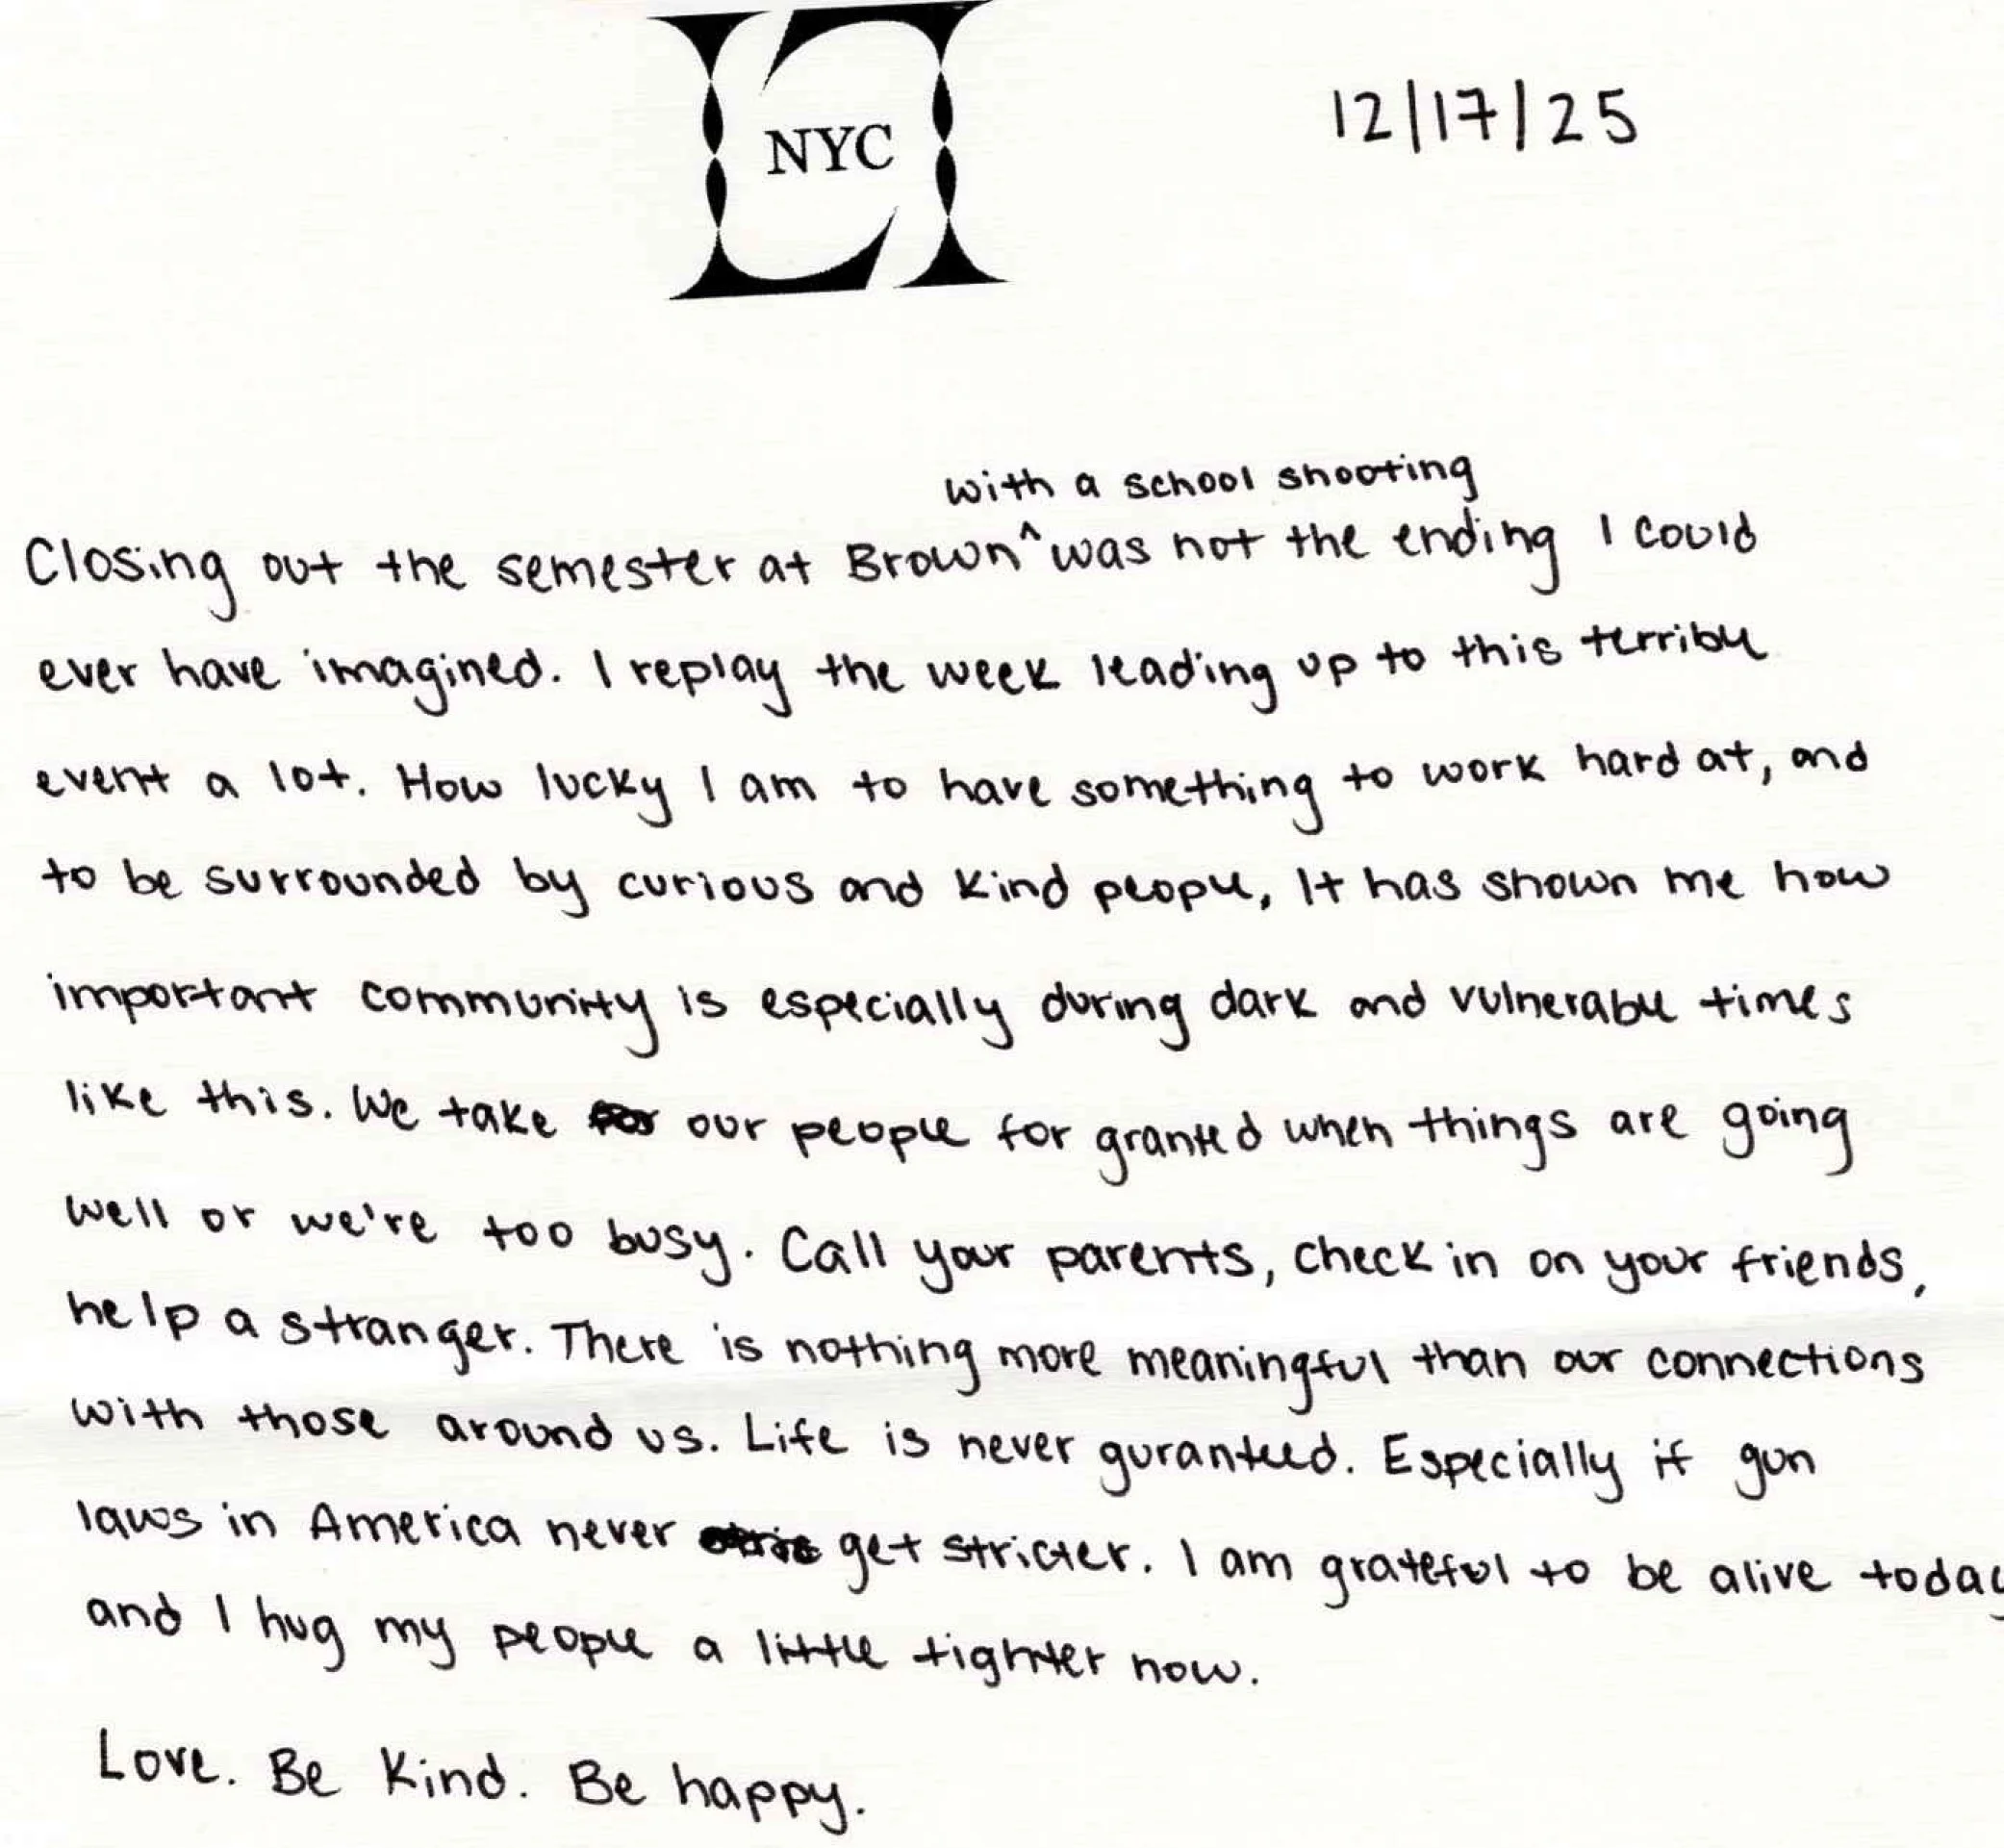 NYC
12/17/25
with a school shooting
Closing out the semester at Brown^ was not the ending I could
ever have imagined. I replay the week leading up to this terrible
event a lot. How lucky I am to have something to work hard at, and
to be surrounded by curious and kind people, It has shown me how
important community is especially during dark and vulnerable times
like this. We take our people for granted when things are going
well or we're too busy. Call your parents, check in on your friends,
help a stranger. There is nothing more meaningful than our connections
with those around us. Life is never guranteed. Especially if gun
laws in America never get stricter. I am grateful to be alive today
and I hug my people a little tighter now.
Love. Be Kind. Be happy.